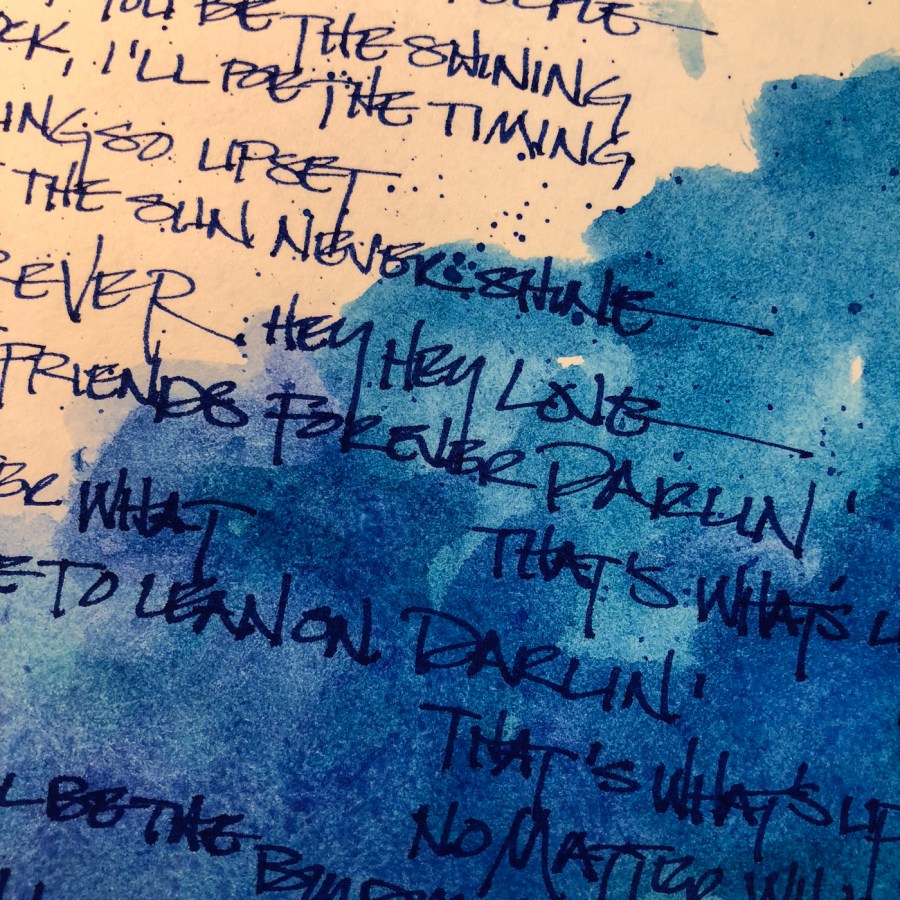 YOU BE PEOPLE
THE SHINING
OCK, I'LL BE THE TIMING
ING SO UPSET
THE SUN NEVER SHINE
REVER HEY HEY LOVE
FRIENDS FOREVER DARLIN'
ER WHAT
THAT'S WHAT'S U
E TO LEAN ON DARLIN'
THAT'S WHAT'S UP
L BE THE
NO MATTER